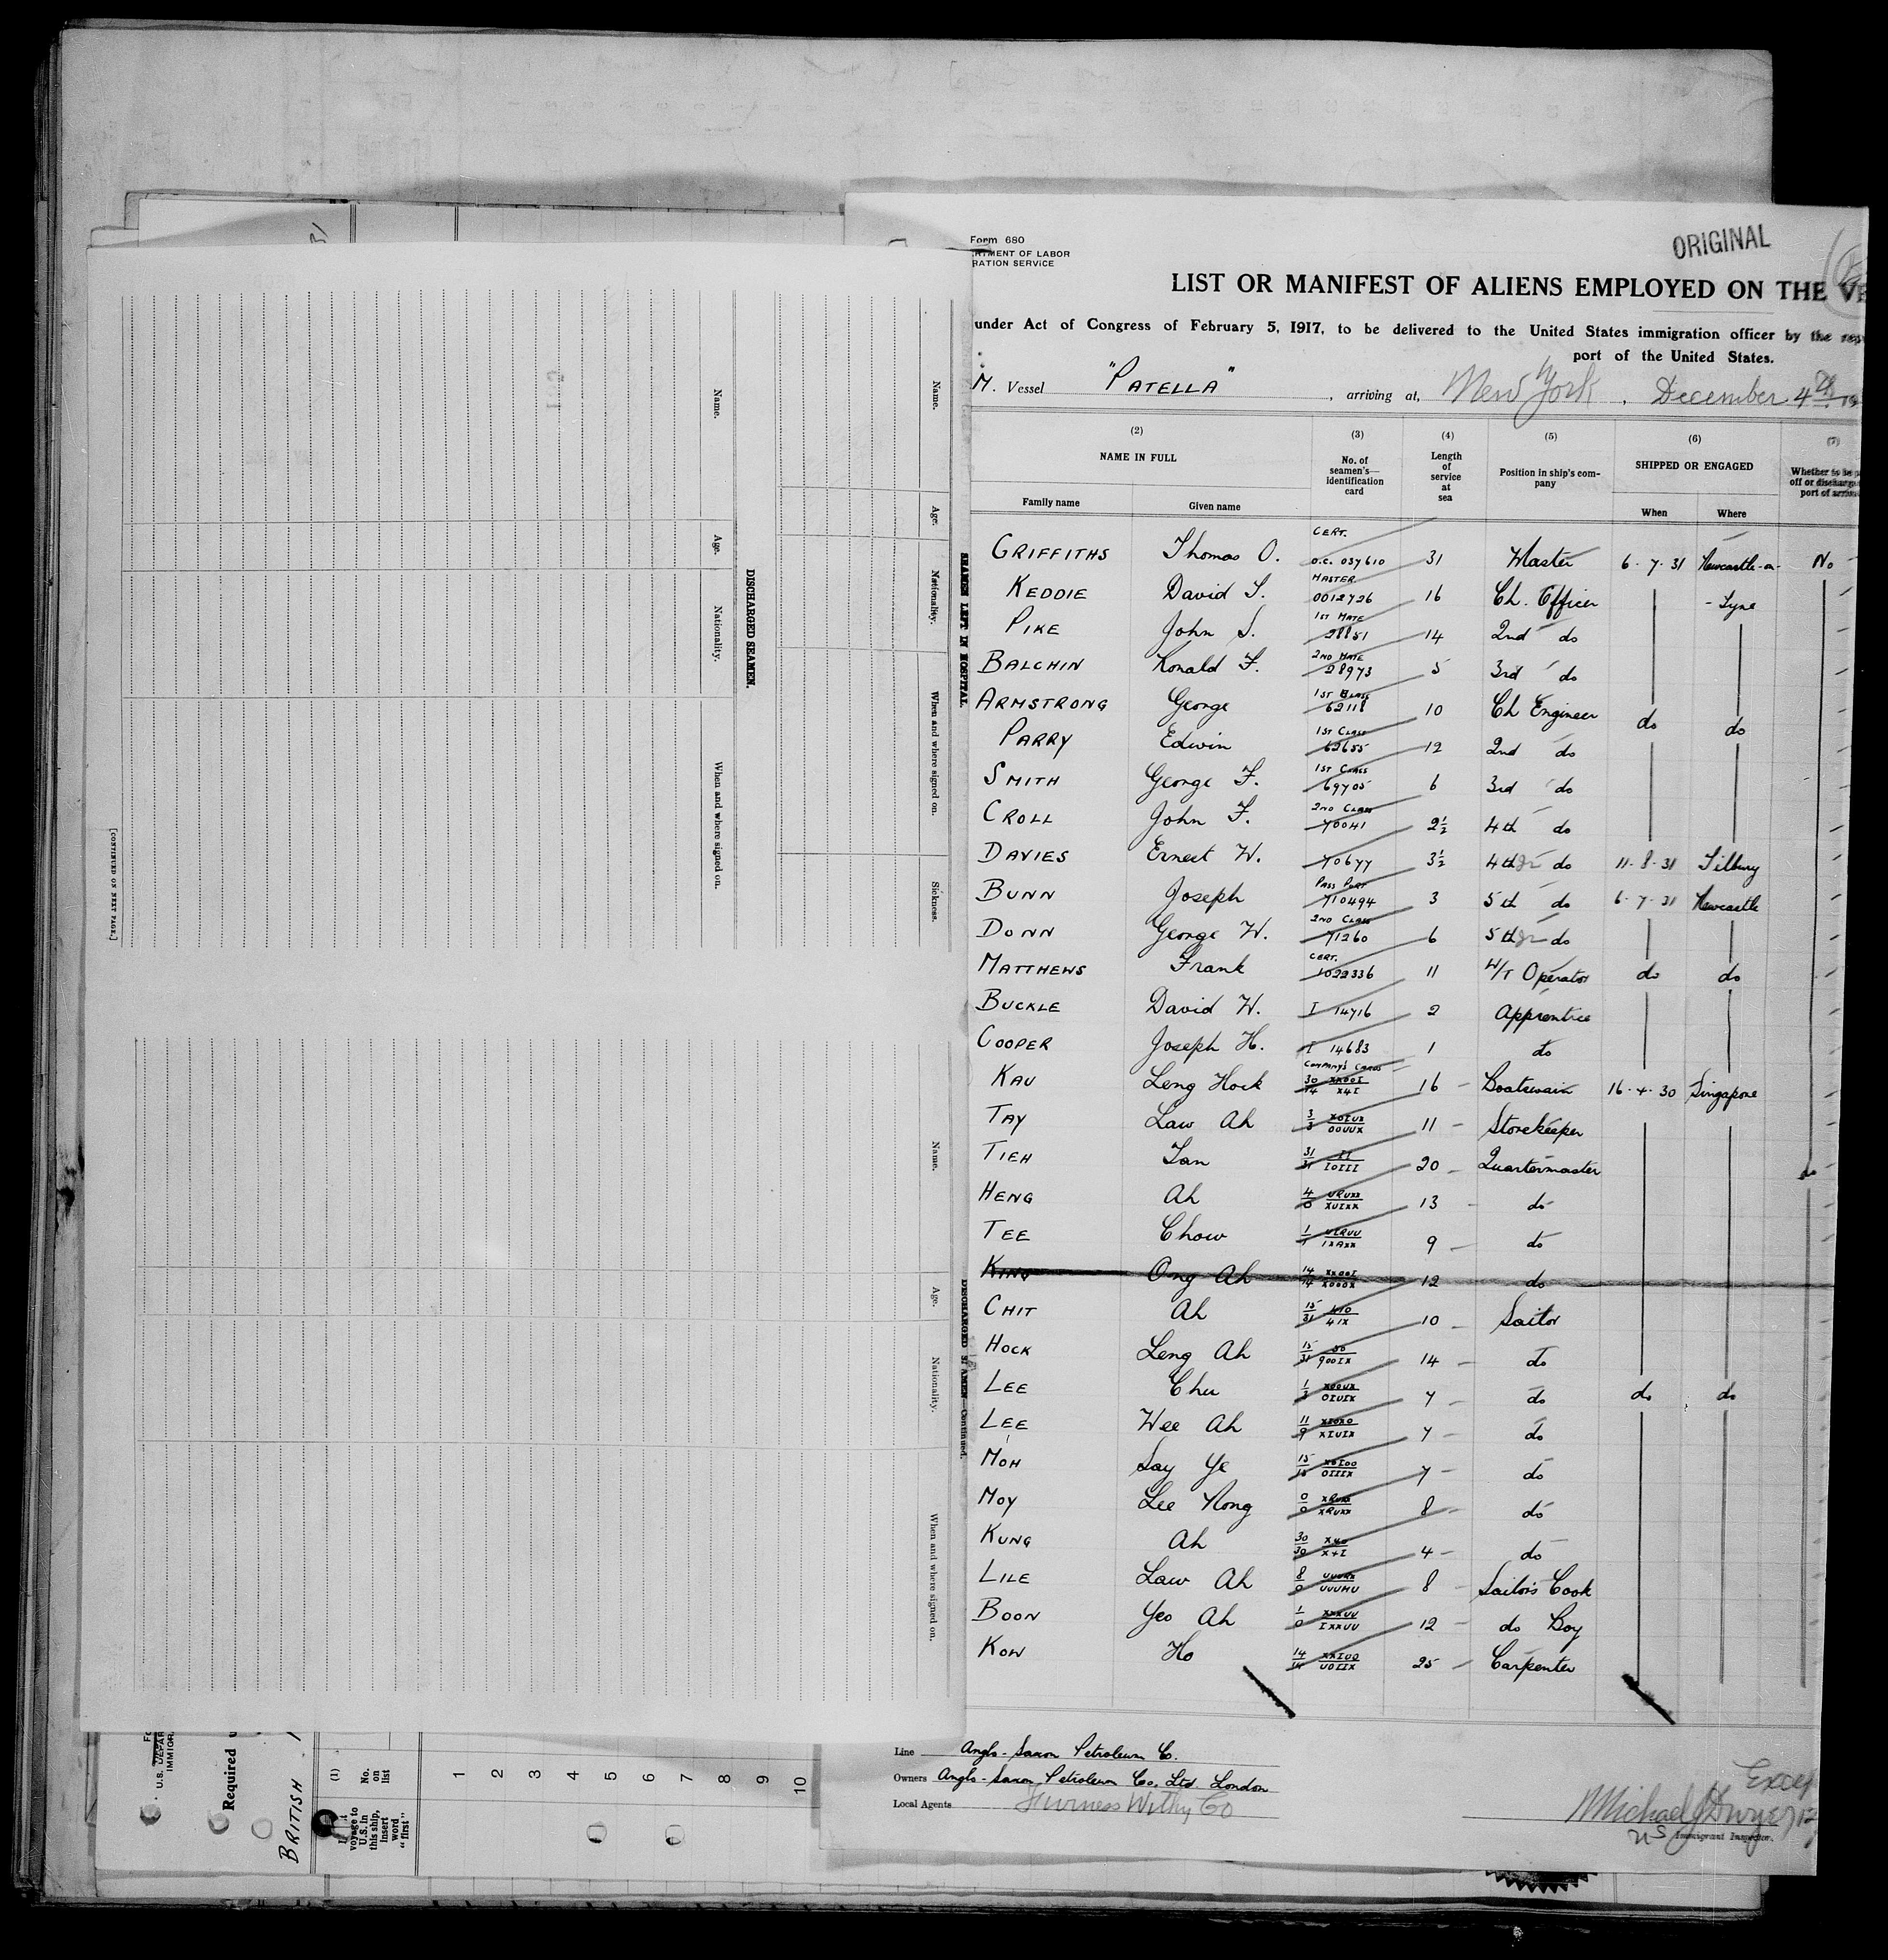 Form 680
RTMENT OF LABOR
RATION SERVICE
ORIGINAL
LIST OR MANIFEST OF ALIENS EMPLOYED ON THE VE
under Act of Congress of February 5, 1917, to be delivered to the United States immigration officer by the rep
port of the United States.
M. Vessel "PATELLA", arriving at, New York, December 4th 19
(2) (3) (4) (5) (6) (7)
NAME IN FULL
Family name Given name
No. of seamen's identification card
Length of service at sea
Position in ship's company
SHIPPED OR ENGAGED
When Where
Whether to be
off or discharge
port of arriva
GRIFFITHS Thomas O. CERT. O.C. 037610 31 Master 6.7.31 Newcastle-on- No
KEDDIE David S. MASTER 0012726 16 Ch. Officer -Tyne
PIKE John S. 1ST MATE 28851 14 2nd do
BALCHIN Ronald F. 2ND MATE 28973 5 3rd do
ARMSTRONG George 1ST CLASS 62118 10 Ch Engineer do do
PARRY Edwin 1ST CLASS 62655 12 2nd do
SMITH George F. 1ST CLASS 69705 6 3rd do
CROLL John F. 2ND CLASS 70041 2½ 4th do
DAVIES Ernest W. 70677 3½ 4th jr do 11.8.31 Tilbury
BUNN Joseph PASS PORT 710494 3 5th do 6.7.31 Newcastle
DONN George W. 2ND CLASS 71260 6 5th jr do
MATTHEWS Frank CERT. 1022336 11 W/T Operator do do
BUCKLE David W. I 14716 2 Apprentice
COOPER Joseph H. I 14683 1 do
KAU Leng Hock COMPANY'S CARDS 16 Boatswain 16.4.30 Singapore
TAY Law Ah 11 Storekeeper
TIEH Tan 20 Quartermaster
HENG Ah 13 do
TEE Chow 9 do
KING Ong Ah 12 do
CHIT Ah 10 Sailor
HOCK Leng Ah 14 do
LEE Chu 7 do do do
LEE Wee Ah 7 do
MOH Say Ye 7 do
MOY Lee Nong 8 do
KUNG Ah 4 do
LILE Law Ah 8 Sailors Cook
BOON Yeo Ah 12 do Boy
KOW Ho 25 Carpenter
Line Anglo-Saxon Petroleum Co.
Owners Anglo-Saxon Petroleum Co. Ltd. London
Local Agents Furness Withy Co
Excep
Michael J Dwyer
US Immigrant Inspector.
SEAMEN LEFT IN HOSPITAL
Name. Age. Nationality. When and where signed on. Sickness.
DISCHARGED SEAMEN.
Name. Age. Nationality. When and where signed on.
[CONTINUED ON NEXT PAGE.]
DISCHARGED SEAMEN—Continued.
Name. Age. Nationality. When and where signed on.
U.S. DEPAR
IMMIGRA
Required u
BRITISH
(1)
No. on list
voyage to U.S. in this ship, insert word "first"
1 2 3 4 5 6 7 8 9 10